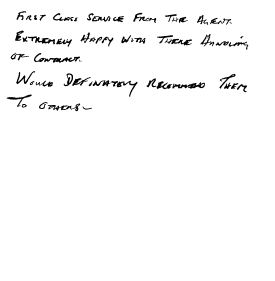 First Class Service From The Agent.
Extremely Happy With There Handling
of Contract.
Would Definately Recommend Them
To others